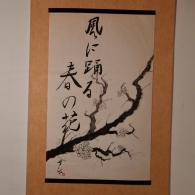 風に踊る
春の花